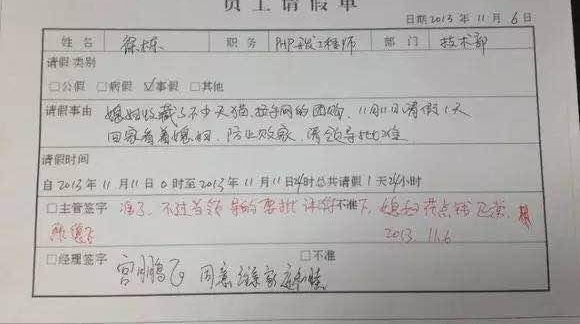 员工请假单
日期2013年11月6日
姓名 徐栋 职务 PHP开发工程师 部门 技术部
请假类别
□公假 □病假 ☑事假 □其他
请假事由 媳妇收藏了不少天猫、拉手网的团购,11月11日请假1天
回家看着媳妇,防止败家,请领导批准
请假时间
自2013年11月11日0时至2013年11月11日24时总共请假1天24小时
□主管签字 准了,不过当领导的要批评你 不准 下,媳妇花点钱正常,
2013.11.6
□经理签字 宫鹏飞 同意 维系家庭和睦 □不准